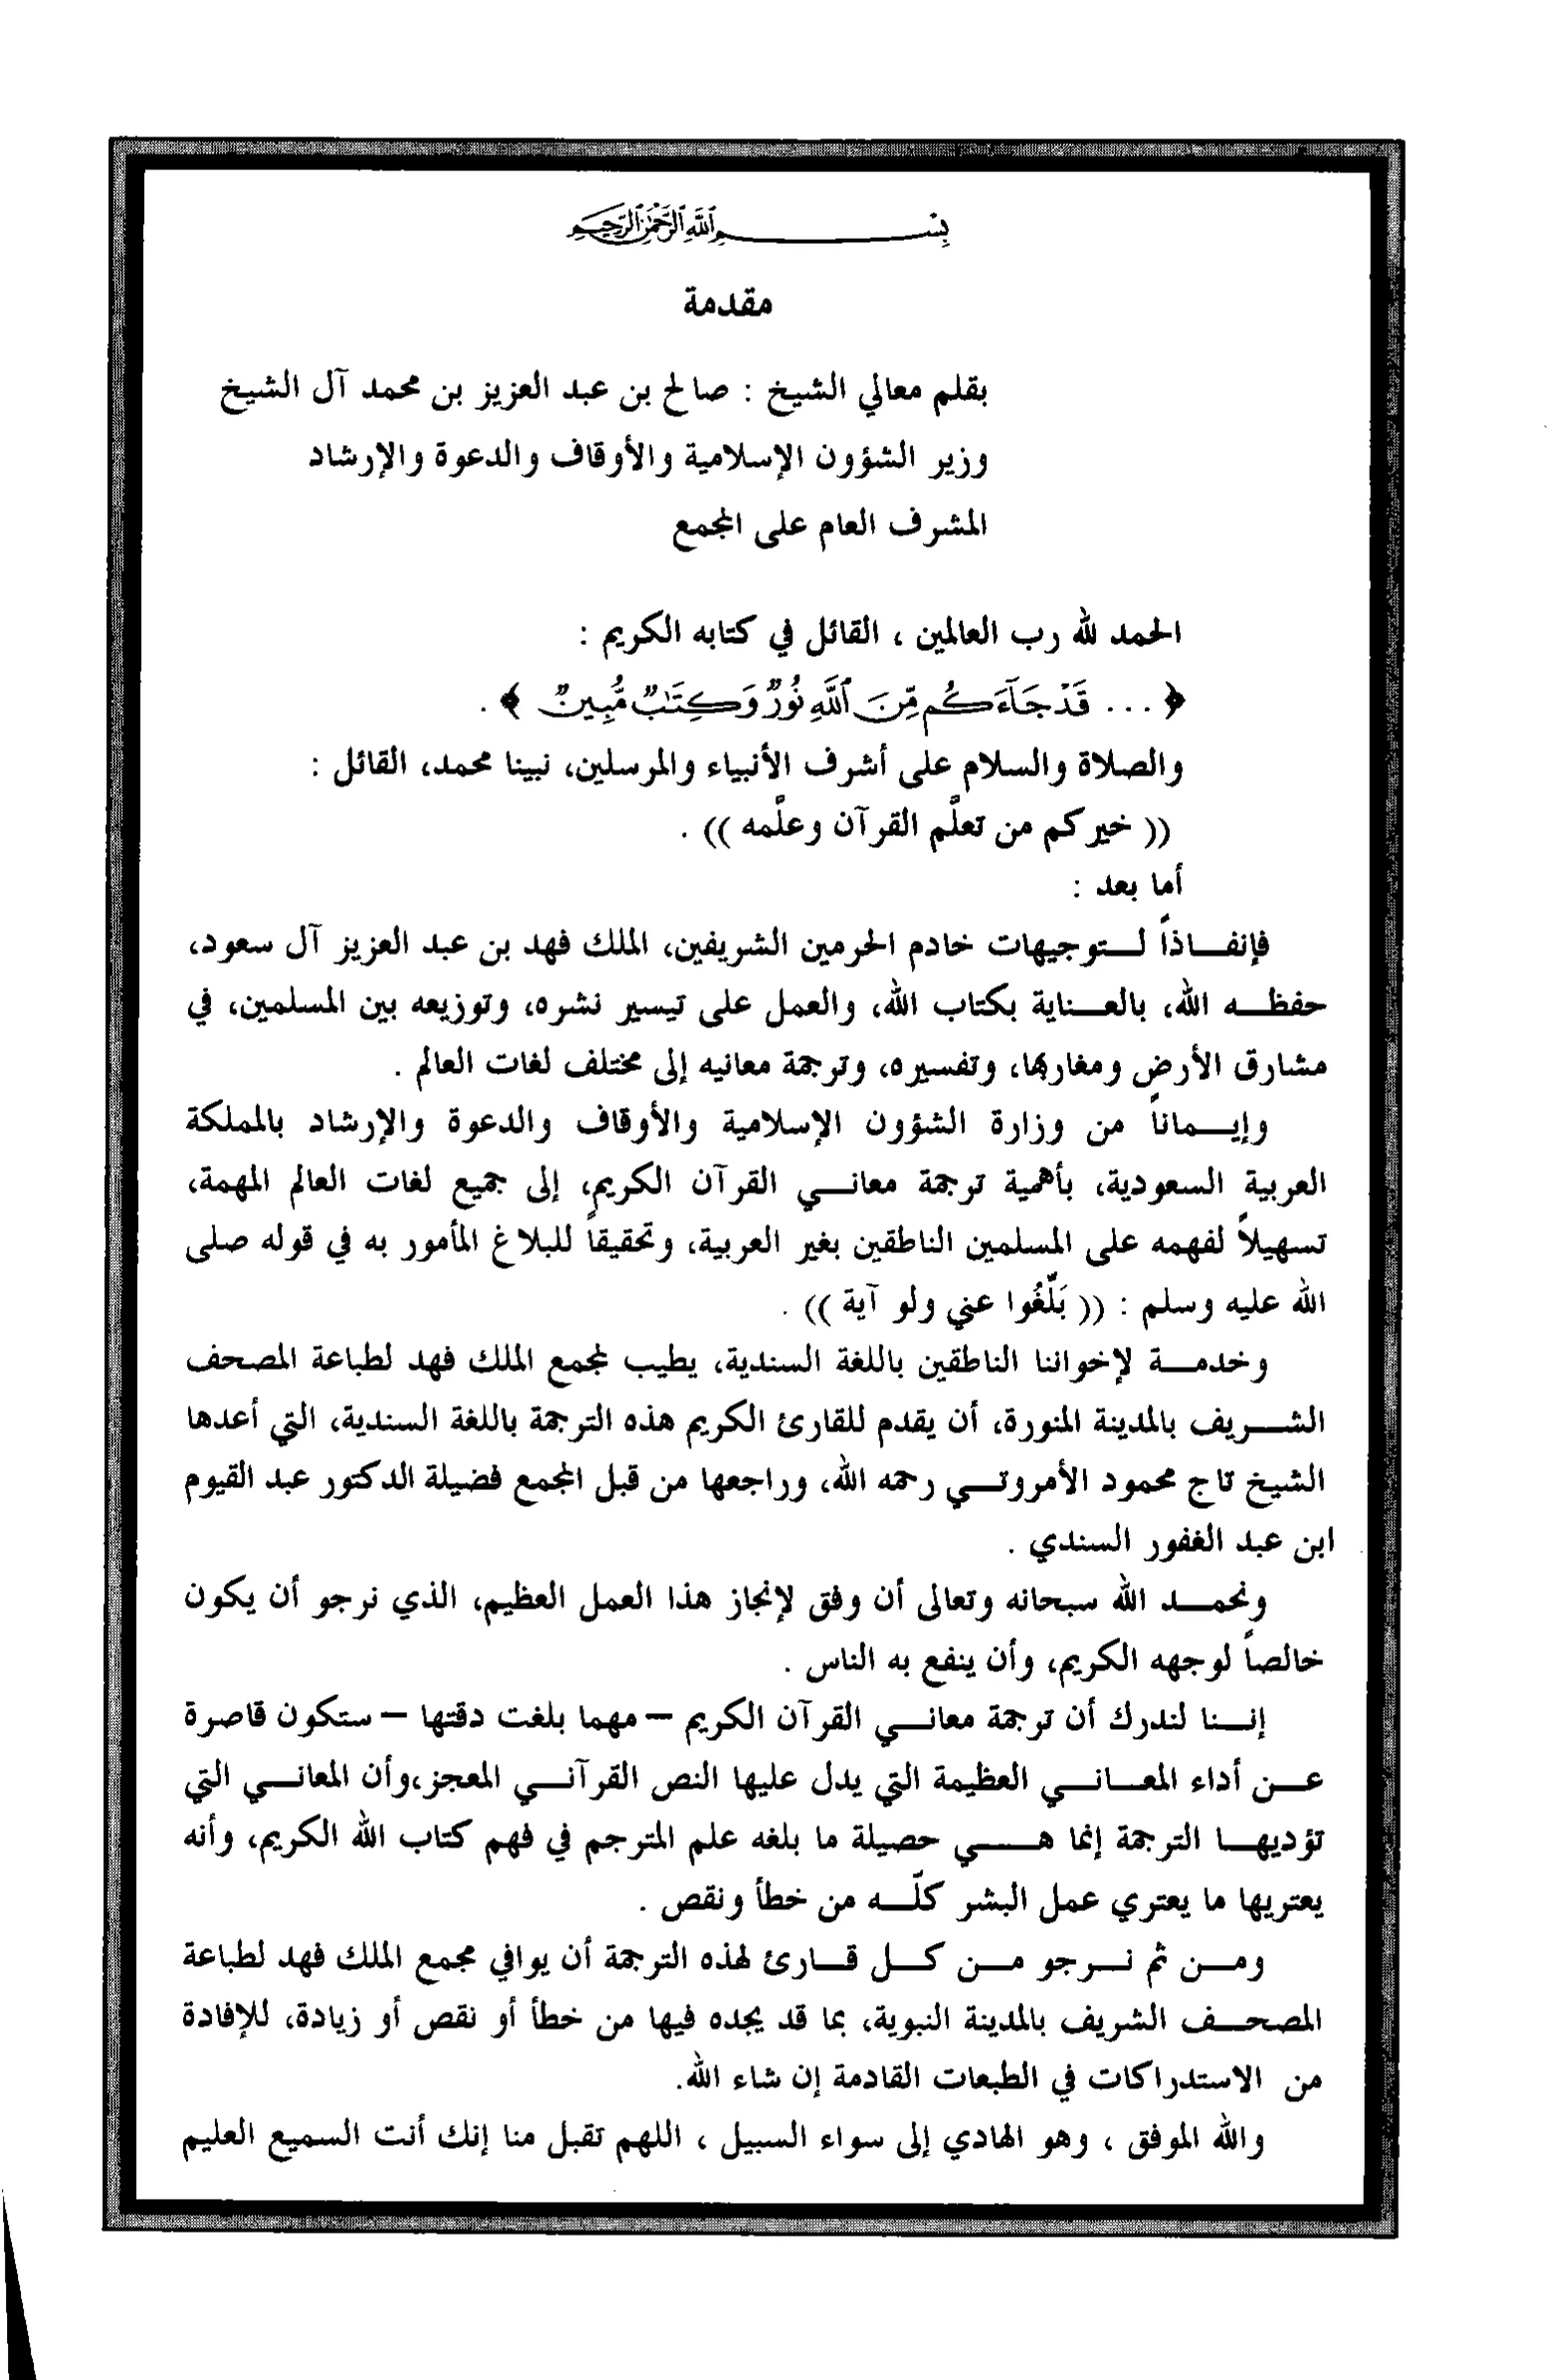 بِسْمِ ٱللَّهِ ٱلرَّحْمَٰنِ ٱلرَّحِيمِ
مقدمة
بقلم معالي الشيخ : صالح بن عبد العزيز بن محمد آل الشيخ
وزير الشؤون الإسلامية والأوقاف والدعوة والإرشاد
المشرف العام على المجمع
الحمد لله رب العالمين ، القائل في كتابه الكريم :
﴿ ... قَدْ جَآءَكُم مِّنَ ٱللَّهِ نُورٌ وَكِتَٰبٌ مُّبِينٌ ﴾ .
والصلاة والسلام على أشرف الأنبياء والمرسلين، نبينا محمد، القائل :
(( خيركم من تعلَّم القرآن وعلَّمه )) .
أما بعد :
فإنفاذاً لتوجيهات خادم الحرمين الشريفين، الملك فهد بن عبد العزيز آل سعود،
حفظه الله، بالعناية بكتاب الله، والعمل على تيسير نشره، وتوزيعه بين المسلمين، في
مشارق الأرض ومغاربها، وتفسيره، وترجمة معانيه إلى مختلف لغات العالم .
وإيماناً من وزارة الشؤون الإسلامية والأوقاف والدعوة والإرشاد بالمملكة
العربية السعودية، بأهمية ترجمة معاني القرآن الكريم، إلى جميع لغات العالم المهمة،
تسهيلاً لفهمه على المسلمين الناطقين بغير العربية، وتحقيقاً للبلاغ المأمور به في قوله صلى
الله عليه وسلم : (( بَلِّغُوا عني ولو آية )) .
وخدمة لإخواننا الناطقين باللغة السندية، يطيب لمجمع الملك فهد لطباعة المصحف
الشريف بالمدينة المنورة، أن يقدم للقارئ الكريم هذه الترجمة باللغة السندية، التي أعدها
الشيخ تاج محمود الأمروتي رحمه الله، وراجعها من قبل المجمع فضيلة الدكتور عبد القيوم
ابن عبد الغفور السندي .
ونحمد الله سبحانه وتعالى أن وفق لإنجاز هذا العمل العظيم، الذي نرجو أن يكون
خالصاً لوجهه الكريم، وأن ينفع به الناس .
إننا لندرك أن ترجمة معاني القرآن الكريم – مهما بلغت دقتها – ستكون قاصرة
عن أداء المعاني العظيمة التي يدل عليها النص القرآني المعجز،وأن المعاني التي
تؤديها الترجمة إنما هي حصيلة ما بلغه علم المترجم في فهم كتاب الله الكريم، وأنه
يعتريها ما يعتري عمل البشر كلّه من خطأ ونقص .
ومن ثم نرجو من كل قارئ لهذه الترجمة أن يوافي مجمع الملك فهد لطباعة
المصحف الشريف بالمدينة النبوية، بما قد يجده فيها من خطأ أو نقص أو زيادة، للإفادة
من الاستدراكات في الطبعات القادمة إن شاء الله.
والله الموفق ، وهو الهادي إلى سواء السبيل ، اللهم تقبل منا إنك أنت السميع العليم